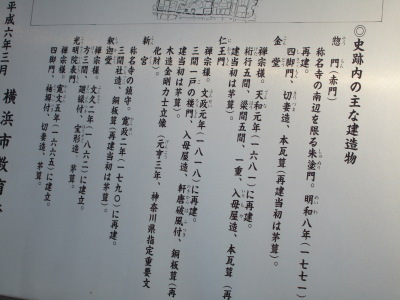 ◎史跡内の主な建造物
惣門(赤門)
称名寺の南辺を限る朱塗門。明和八年(一七七一)
再建。
四脚門、切妻造、本瓦葺(再建当初は茅葺)。
金堂
禅宗様。天和元年(一六八一)に再建。
桁行五間、梁間五間、一重、入母屋造、本瓦葺(再
建当初は茅葺)。
仁王門
禅宗様。文政元年(一八一八)に再建。
三間一戸の楼門、入母屋造、軒唐破風付、銅板葺(再
建当初は茅葺)。
木造金剛力士立像(元亨三年、神奈川県指定重要文
化財)。
新宮
称名寺の鎮守。寛政二年(一七九〇)に再建。
三間社造、銅板葺(再建当初は茅葺)。
釈迦堂
禅宗様。文久二年(一八六二)に建立。
方三間、廻縁付、宝形造、茅葺。
光明院表門
禅宗様。寛文五年(一六六五)に建立。
四脚門、袖塀付、切妻造、茅葺。
平成六年三月 横浜市教育